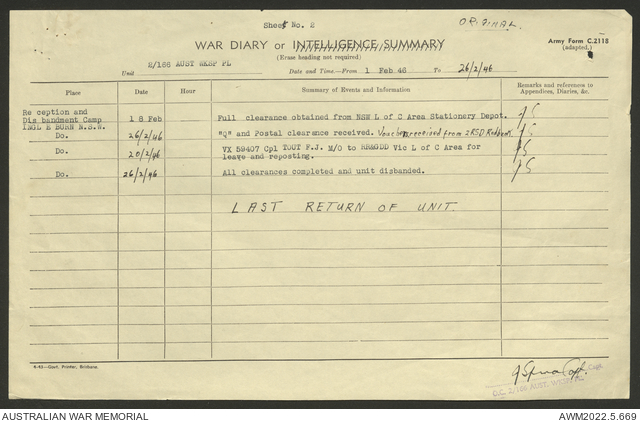 Sheet No. 2
ORIGINAL.
WAR DIARY or INTELLIGENCE SUMMARY
Army Form C.2118
(adapted.)
(Erase heading not required)
Unit 2/166 AUST WKSP PL
Date and Time—From 1 Feb 46 To 26/2/46
Place Date Hour Summary of Events and Information Remarks and references to Appendices, Diaries, &c.
Reception and
Disbandment Camp 18 Feb Full clearance obtained from NSW L of C Area Stationery Depot.
INGLEBURN N.S.W.
Do. 26/2/46 "Q" and Postal clearance received. Voucher received from 2RSD Redbank.
Do. 20/2/46 VX 59407 Cpl TOUT F.J. M/O to RR&GDD Vic L of C Area for
leave and reposting.
Do. 26/2/46 All clearances completed and unit disbanded.
LAST RETURN OF UNIT.
6-43—Govt. Printer, Brisbane.
Capt.
O.C. 2/166 AUST. WKSP. PL.
AUSTRALIAN WAR MEMORIAL
AWM2022.5.669